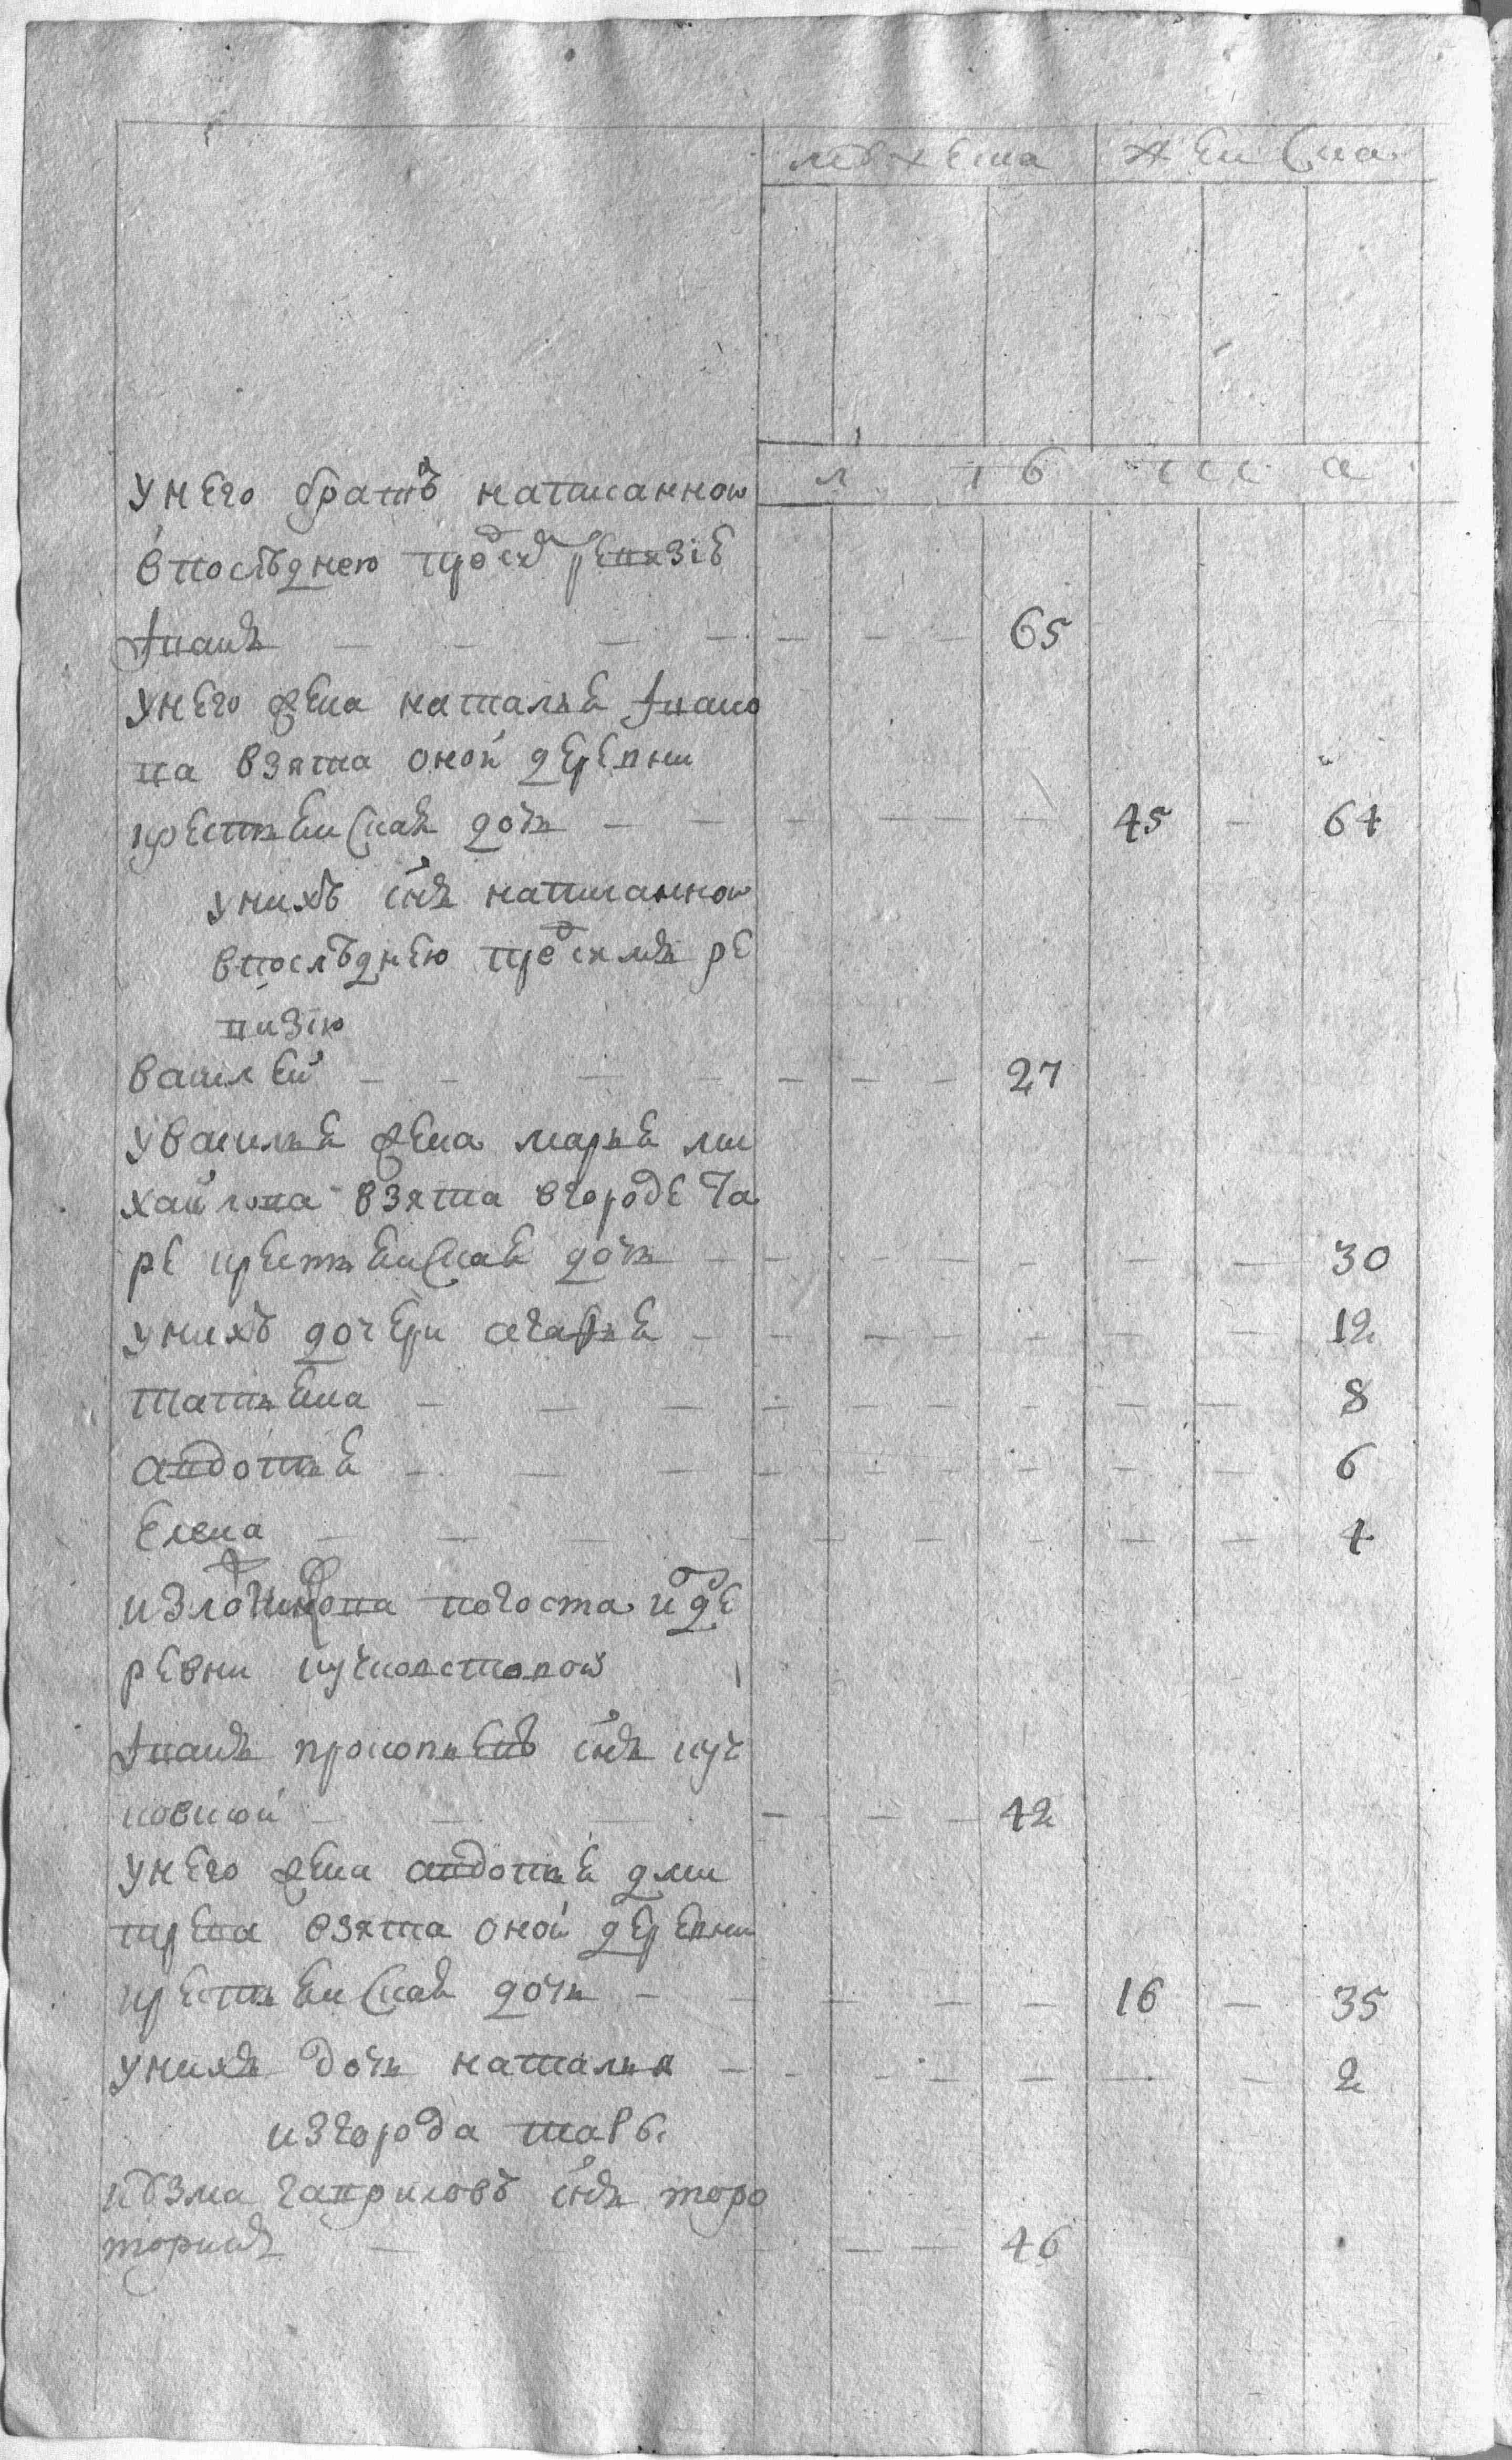 мужеска женска
л т б ска
У него братъ написанной
впоследнею пред сим ревизiе
Iванъ — — — — — — 65
У него жена наталья Iвано
ва взята оной деревни
крестьянская дочь — — — — — — 45 — 64
У нихъ сынъ написанной
впоследнею пред симъ ре
визiю
василей — — — — — — 27
У василья жена марья ми
хайлова взята вгороде Та
ре крестьянская дочь — — — — 30
У нихъ дочери агафья — — — — — 12
татьяна — — — — — 8
авдотья — — — — — 6
Елена — — — — — 4
из погоста и де
ревни
Iванъ прокопьевъ сынъ куч
ковской — — — — 42
У него жена авдотья дми
трева взята оной деревни
крестьянская дочь — — — — 16 — 35
У нихъ дочь наталья — — — — — 2
из города тары
кузма гавриловъ сынъ — — — 46